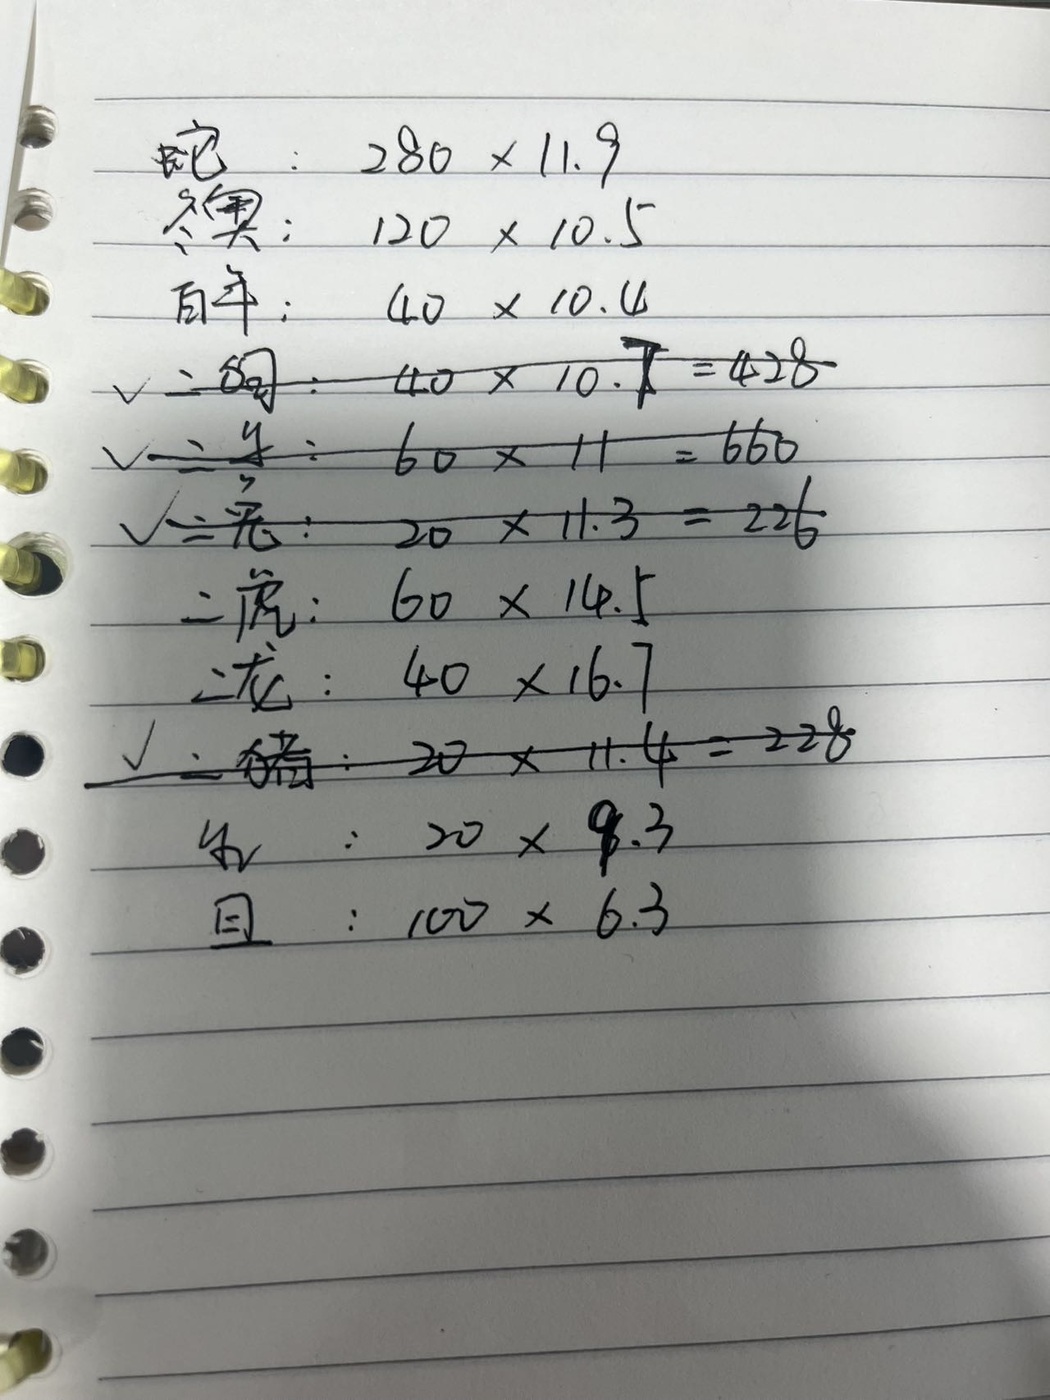 蛇 : 280 × 11.9
冬奥: 120 × 10.5
百年: 40 × 10.4
✓ 二狗: 40 × 10.7 = 428
✓ 二羊: 60 × 11 = 660
✓ 二羌: 20 × 11.3 = 226
二虎: 60 × 14.5
二龙: 40 × 16.7
✓ 二猪: 20 × 11.4 = 228
: 20 × 9.3
国 : 100 × 6.3